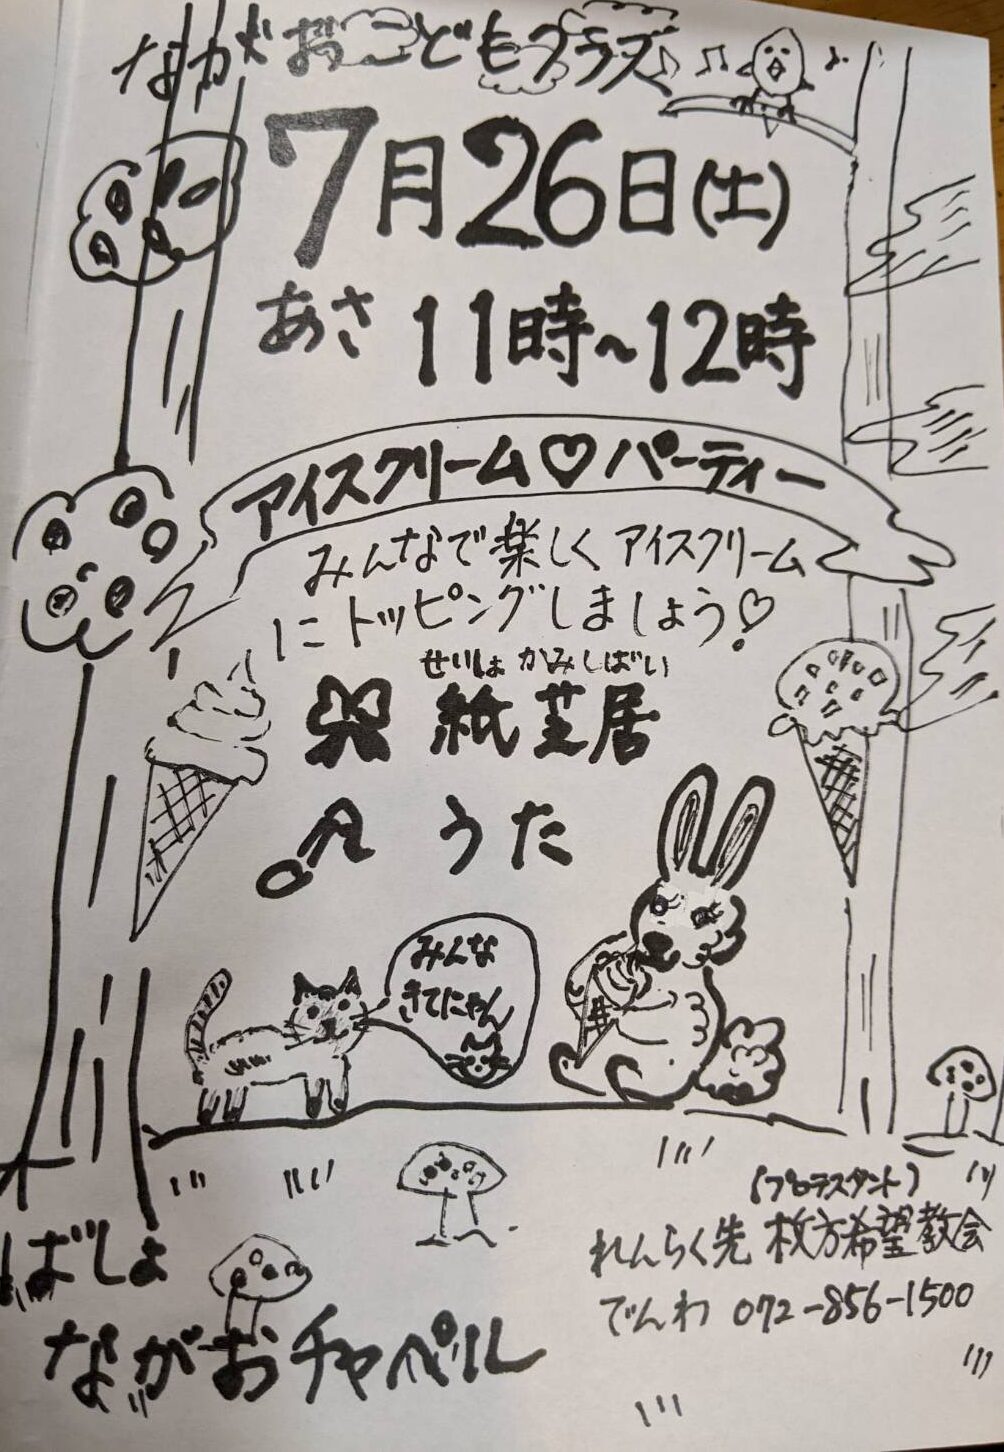 ながおこどもクラブ
7月26日(土)
あさ 11時~12時
アイスクリーム♡パーティー
みんなで楽しくアイスクリーム
にトッピングしましょう!♡
せいしょ かみしばい
紙芝居
うた
みんな
きてにゃん
(プロテスタント)
れんらく先 枚方希望教会
でんわ 072-856-1500
ばしょ
ながおチャペル